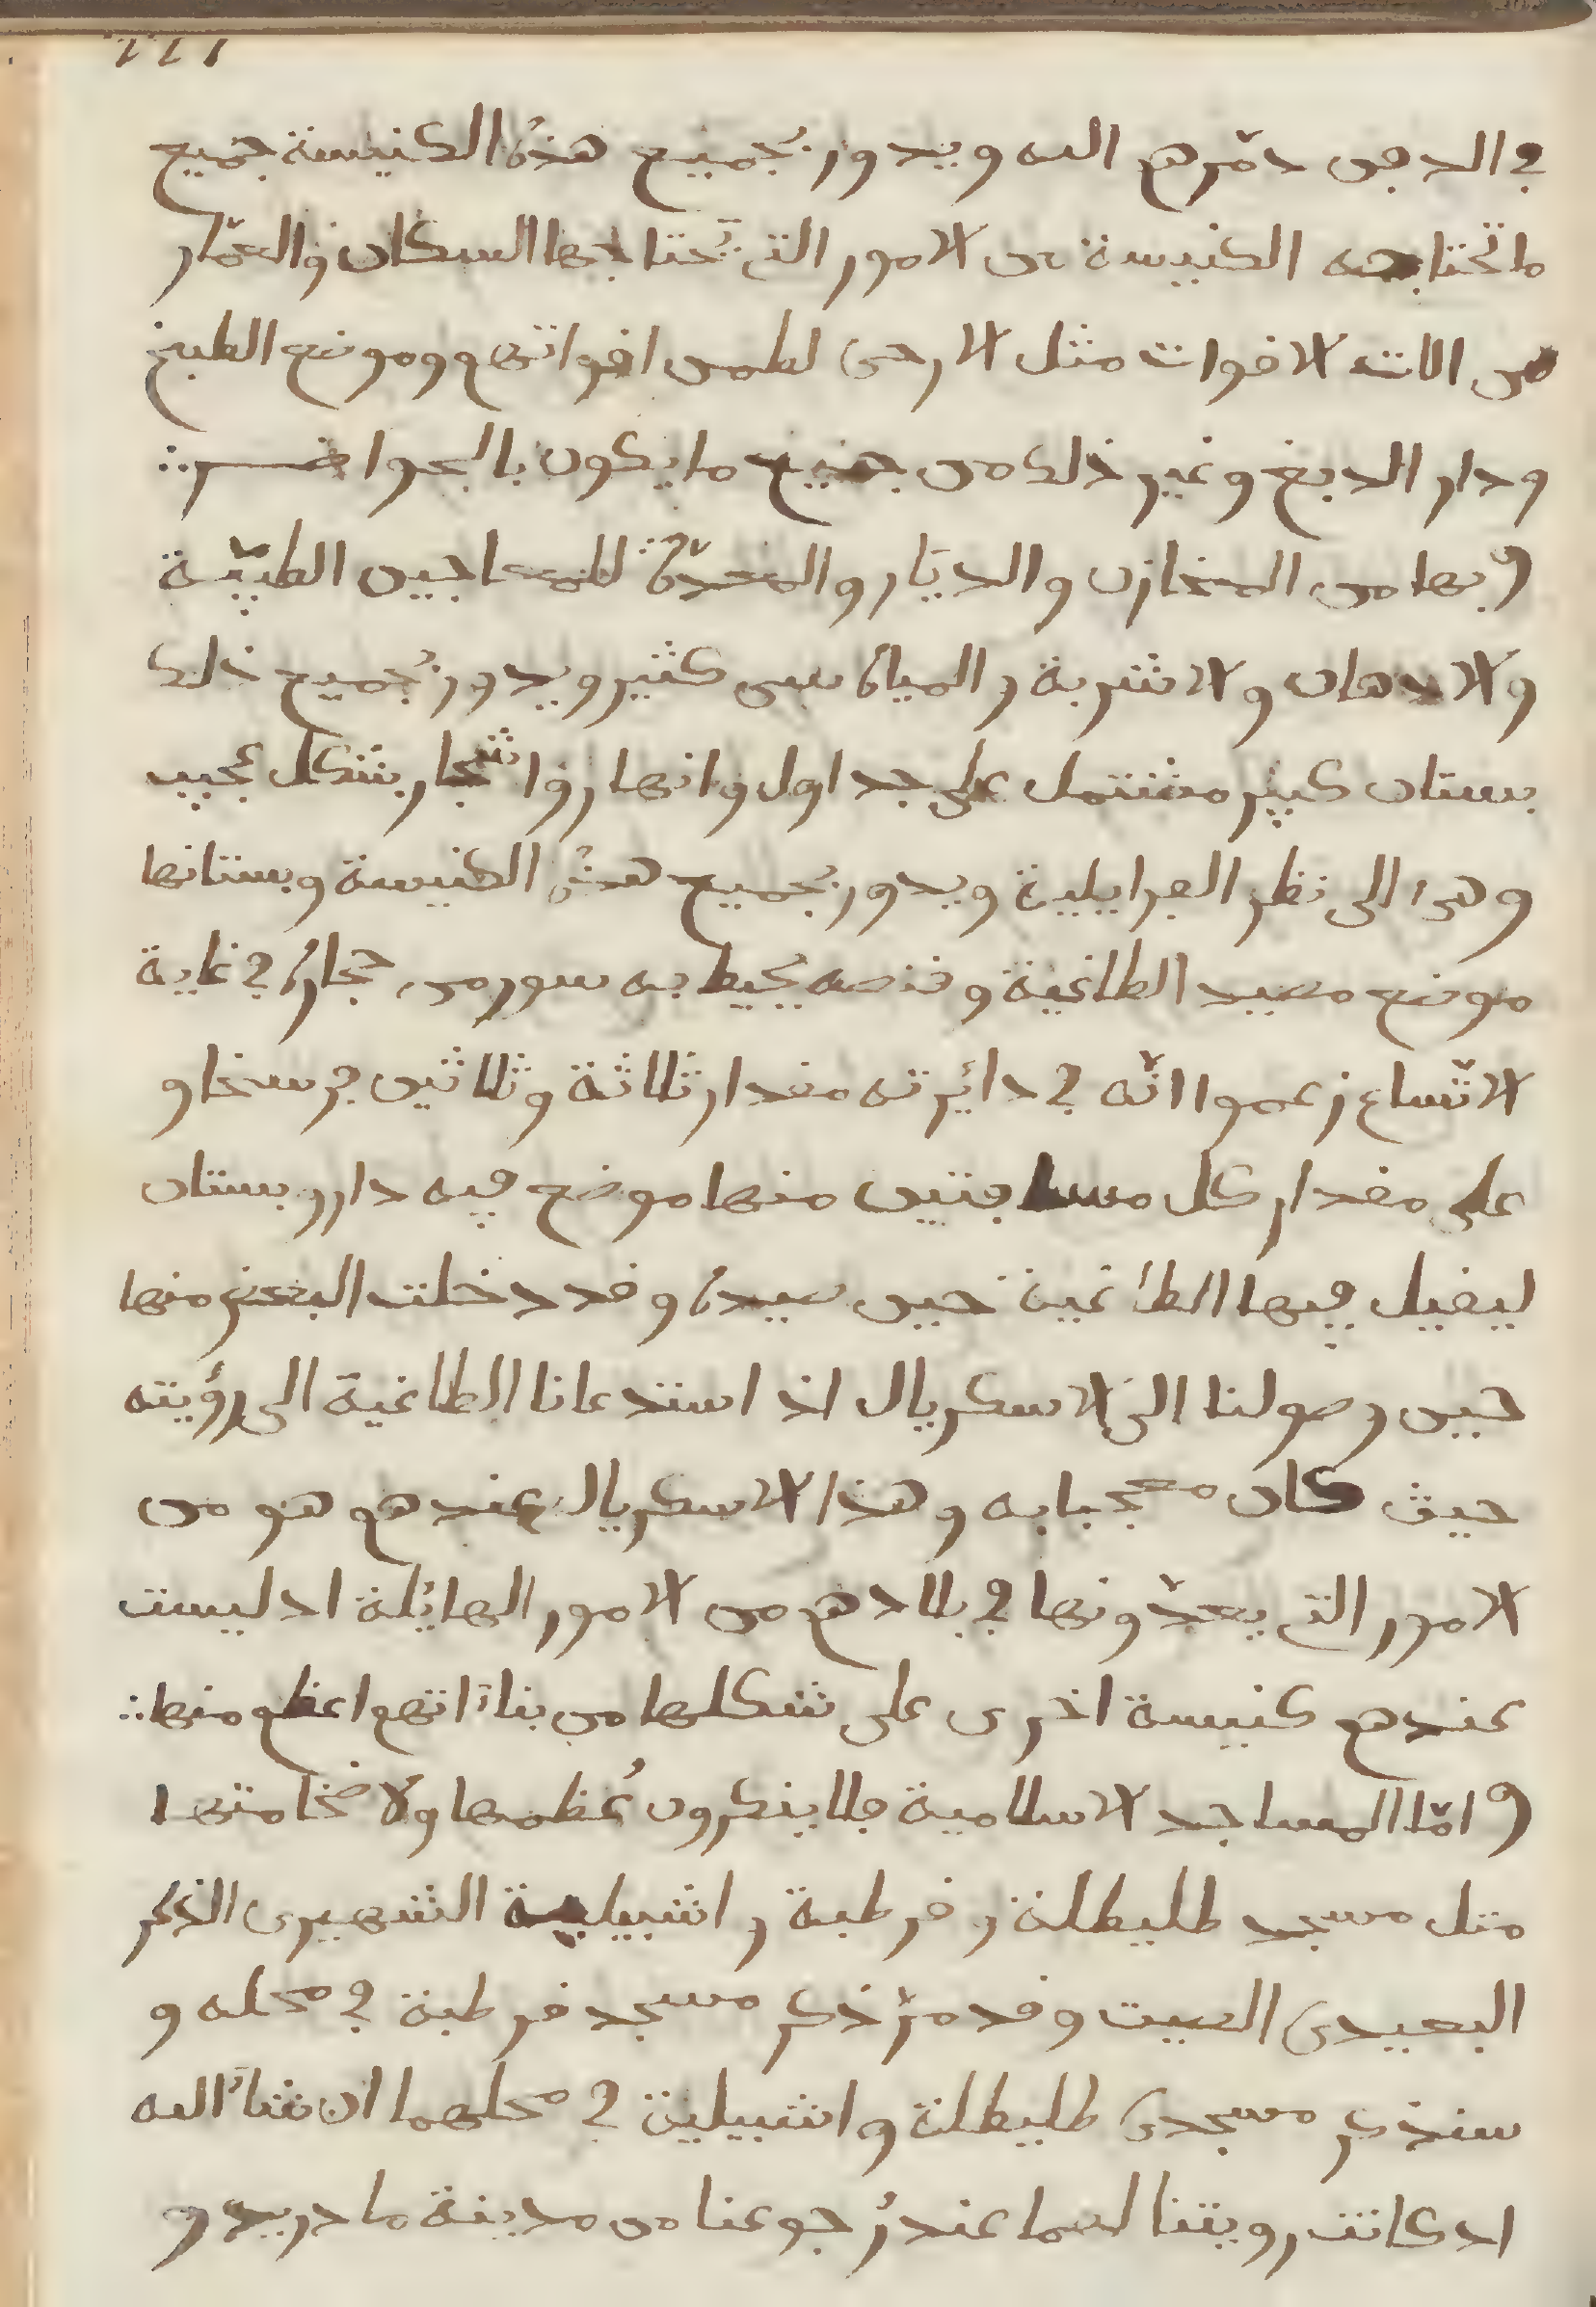 ١٢٢
في الدفن دمّرهم الله ويدور بجميع هذه الكنيسة جميع
ما تحتاجه الكنيسة من الامور التي يحتاجها السكان والعمّار
من الات الاقوات مثل الارحى لطحن اقواتهم وموضع الطبخ
ودار الدبغ وغير ذلك من جميع ما يكون بالحواضر ∴
وبها من المخازن والديار والمعدّة للمعاجين الطبيّة
والادهان والاشربة والمياه شي كثير ويدور بجميع ذلك
بستان كبير مشتمل على جداول وانهار واشجار بشكل عجيب
وهي الى نظر الفرايلية ويدور بجميع هذه الكنيسة وبستانها
موضع مصيد الطاغية وقنصه يحيط به سور من حجارة في غاية
الاتّساع زعموا انّه في دائرته مقدار ثلاثة وثلاثين فرسخا و
على مقدار كل مسافتين منها موضع فيه دار وبستان
ليقيل فيها الطاغية حين صيده وقد دخلت البعض منها
حين وصولنا الى الاسكريال اذ استدعانا الطاغية الى رؤيته
حيث كان معجبا به وهذا الاسكريال عندهم هو من
الامور التي يعدّونها في بلادهم من الامور الهائلة اد ليست
عندهم كنيسة اخرى على شكلها من بناآتهم اعظم منها ∴
وامّا المساجد الاسلامية فلا ينكرون عُظمها ولا ضخامتها
مثل مسجد طليطلة وقرطبة واشبيلية الشهيرى الذكر
البعيدى الصيت وقد مرّ ذكر مسجد قرطبة في محله و
سنذكر مسجدى طليطلة واشبيلية في محلهما ان شاء الله
اد كانت رويتنا لهما عند رُجوعنا من مدينة مادريد و